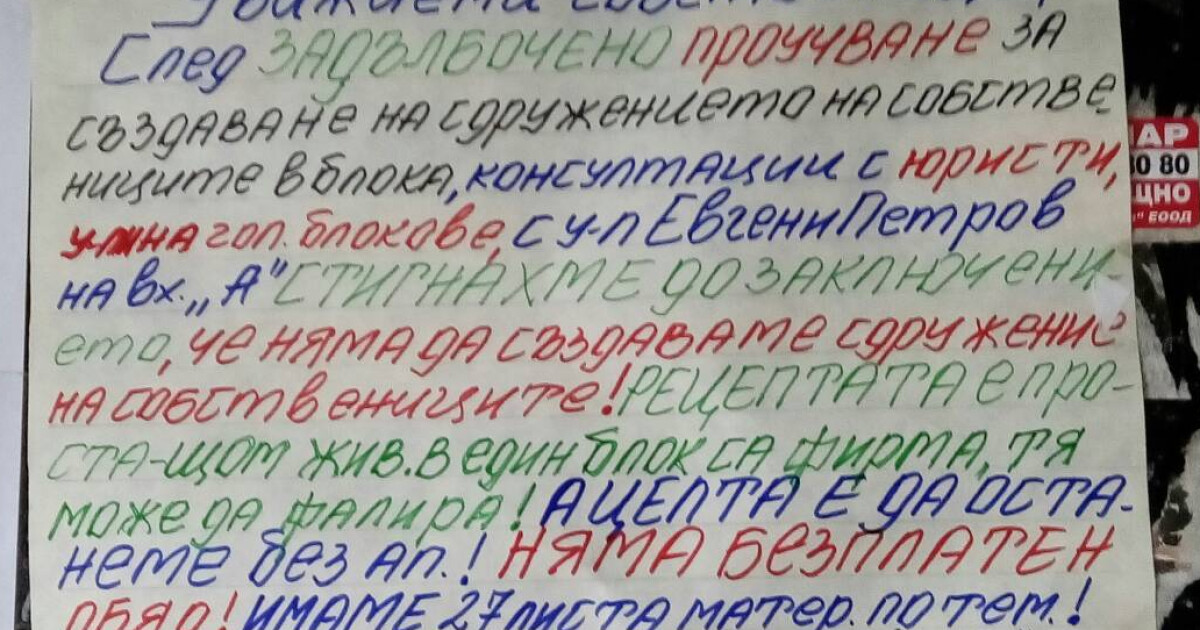 Уважаеми
След ЗАДЪЛБОЧЕНО ПРОУЧВАНЕ ЗА
СЪЗДАВАНЕ НА СДРУЖЕНИЕТО НА СОБСТВЕ
НИЦИТЕ В БЛОКА, КОНСУЛТАЦИИ С ЮРИСТИ,
НА ГОЛ. БЛОКОВЕ, С У-Л ЕВГЕНИ ПЕТРОВ
НА ВХ. „А" СТИГНАХМЕ ДО ЗАКЛЮЧЕНИ-
ЕТО, ЧЕ НЯМА ДА СЪЗДАВАМЕ СДРУЖЕНИЕ
НА СОБСТВЕНИЦИТЕ! РЕЦЕПТАТА Е ПРО-
СТА-ЩОМ ЖИВ. В ЕДИН БЛОК СА ФИРМА, ТЯ
МОЖЕ ДА ФАЛИРА! А ЦЕЛТА Е ДА ОСТА-
НЕМЕ БЕЗ АП.! НЯМА БЕЗПЛАТЕН
ОБЯД! ИМАМЕ 27 ЛИСТА МАТЕР. ПО ТЕМ.!
АР
80
ЦНО
" ЕООД